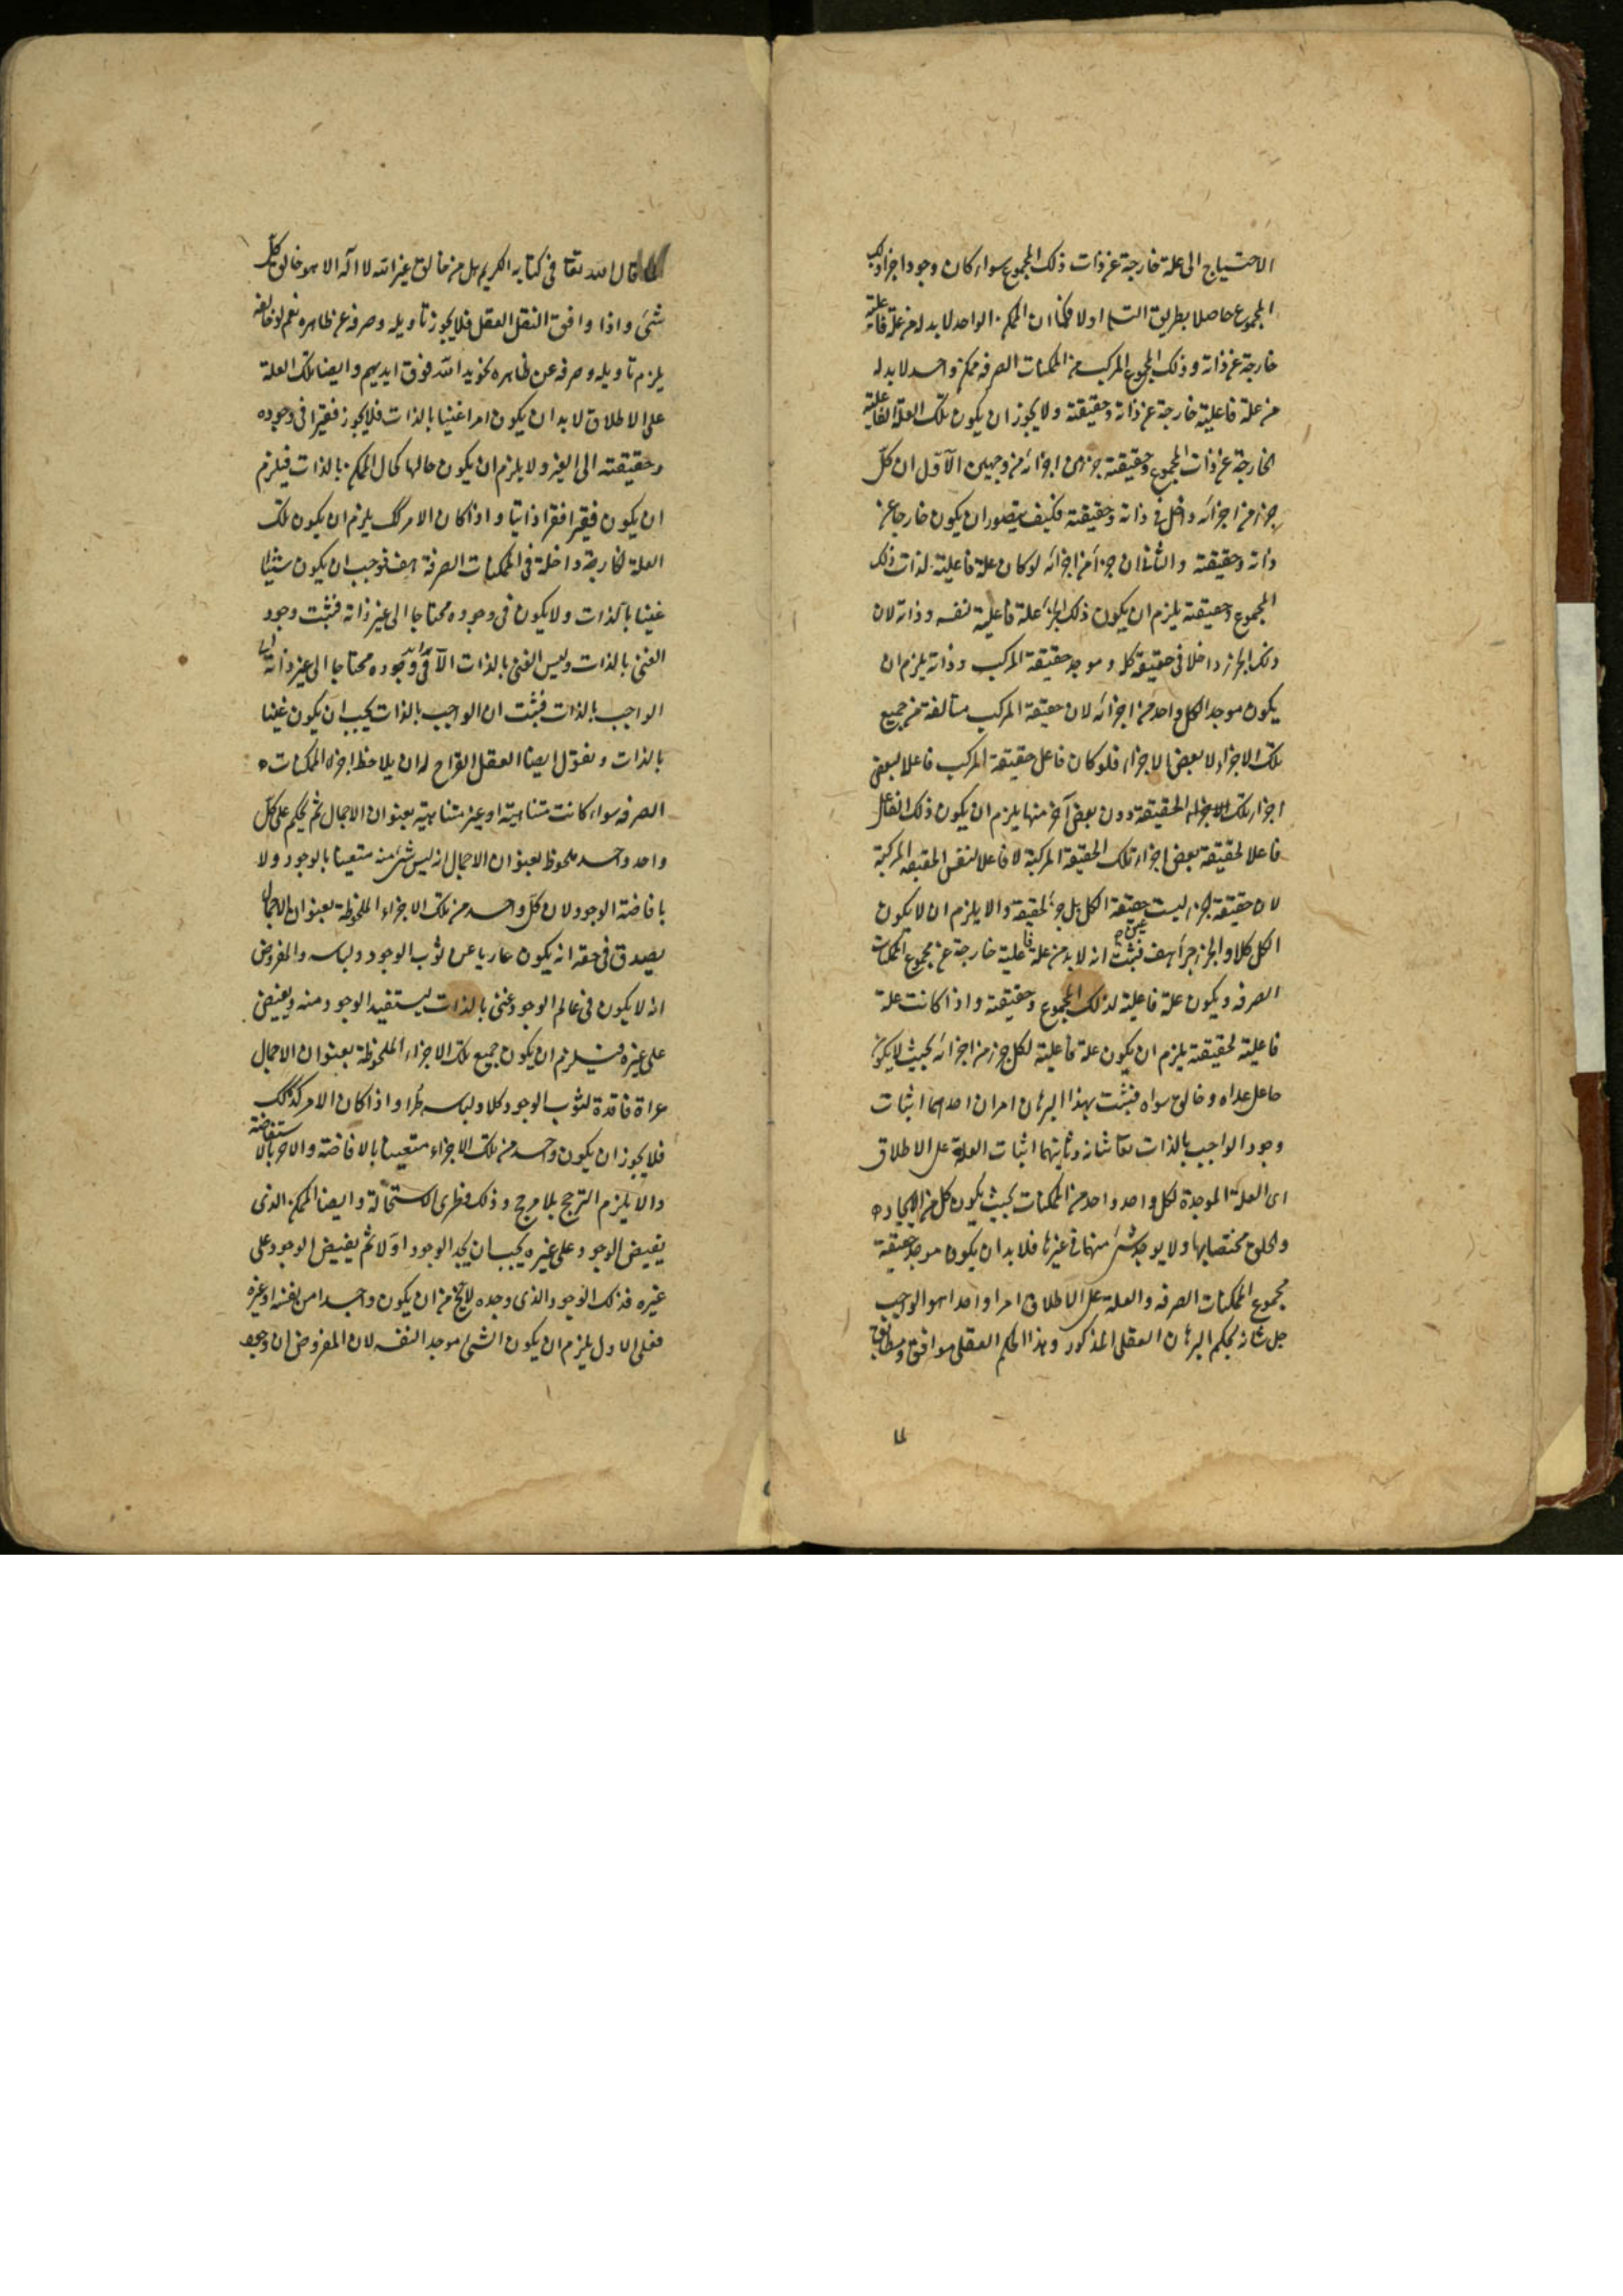 الاحتياج الى علة خارجة عن ذات ذلك المجموع سواء كان وجود اجزاء ذلك
المجموع حاصلا بطريق التسلسل اولا فكما ان الممكن الواحد لا بد له من علة فاعلية
خارجة عن ذاته وذلك المجموع المركب من الممكنات الصرفه ممكن واحد لا بد له
من علة فاعلية خارجة عن ذاته وحقيقته ولا يجوز ان يكون تلك العلة الفاعلية
الخارجة عن ذات المجموع وحقيقته جزء من اجزائه من وجهين الاول ان كل
جزء من اجزائه داخل في ذاته وحقيقته فكيف يتصور ان يكون خارجا عن
ذاته وحقيقته والثانى ان جزأ من اجزائه لو كان علة فاعلية لذات ذلك
المجموع وحقيقته يلزم ان يكون ذلك الجزء علة فاعلية لنفسه وذاته لان
ذلك الجزء داخلا فى حقيقة كله وموجد حقيقة المركب وذاته يلزم ان
يكون موجد الكل واحد من اجزائه لان حقيقة المركب متألفة من جميع
تلك الاجزاء لا بعض الاجزاء فلو كان فاعل حقيقة المركب فاعلا لبعض
اجزاء تلك الحقيقة دون بعض آخر منها يلزم ان يكون ذلك الفاعل
فاعلا لحقيقة بعض اجزاء تلك الحقيقة المركبة لا فاعلا لنفس الحقيقة المركبة
لان حقيقة الجزء ليست حقيقة الكل بل جزء لحقيقته والا يلزم ان لا يكون
الكل كلا والجزء جزأ هف فثبت انه لا بد من علة فاعلية خارجة عن مجموع الممكنات
الصرفه ويكون علة فاعلية لذلك المجموع وحقيقته واذا كانت علة
فاعلية لحقيقته يلزم ان يكون علة فاعلية لكل جزء من اجزائه بحيث لا يكون
جاعل عداه وخالق سواه فثبت بهذا البرهان امران احدهما اثبات
وجود الواجب بالذات تعا شانه وثانيهما اثبات العلة على الاطلاق
اى العلة الموجدة لكل واحد واحد من الممكنات بحيث يكون كل من الايجاد
والخلق مختصا بها ولا يوجد شئ منهما فى غيرها فلا بد ان يكون موجد حقيقة
مجموع الممكنات الصرفه والعلة على الاطلاق امرا واحدا هو الواجب
جل شانه بحكم البرهان العقلى المذكور وهذا الحكم العقلى موافق ومطابق
لما
قال الله تعا فى كتابه الكريم هل من خالق غير الله لا اله الا هو خالق كل
شئ واذا وافق النقل العقل فلا يجوز تأويله وصرفه عن ظاهره نعم لو خالفه
يلزم تأويله وصرفه عن ظاهره نحو يد الله فوق ايديهم وايضا تلك العلة
على الاطلاق لا بد ان يكون امرا غنيا بالذات فلا يجوز فقيرا فى وجوده
وحقيقته الى الغير ولا يلزم ان يكون حالها كحال الممكن بالذات فيلزم
ان يكون فقيرا فقرا ذاتيا واذا كان الامر كك يلزم ان يكون تلك
العلة الخارجة داخلة فى الممكنات الصرفة هف فوجب ان يكون شيئا
غنيا بالذات ولا يكون فى وجوده محتاجا الى غير ذاته فثبت وجود
الغنى بالذات وليس الغنى بالذات الا وجوده محتاجا الى غير ذاته
الواجب بالذات فثبت ان الواجب بالذات يجب ان يكون غنيا
بالذات ونقول ايضا العقل القراح له ان يلاحظ اجزاء الممكنات
الصرفه سواء كانت متناهية او غير متناهية بعنوان الاجمال ثم يحكم على كل
واحد واحد ملحوظ بعنوان الاجمال انه ليس شئ منه متعينا بالوجود ولا
بافاضة الوجود لان كل واحد من تلك الاجزاء الملحوظة بعنوان الاجمال
يصدق فى حقه انه يكون عاريا عن ثوب الوجود ولباسه والمفروض
انه لا يكون فى عالم الوجود غنى بالذات ليستفيد الوجود منه ويفيض
على غيره فيلزم ان يكون جميع تلك الاجزاء الملحوظة بعنوان الاجمال
عراة فاقدة لثوب الوجود كلا ولباسه طرا واذا كان الامر كذلك
فلا يجوز ان يكون واحد من تلك الاجزاء متعينا بالافاضة والاخر بالاستفاضة
والا يلزم الترجح بلا مرجح وذلك فطرى الاستحالة وايضا الممكن الذى
يفيض الوجود على غيره يجب ان يجد الوجود اولا ثم يفيض الوجود على
غيره فذلك الوجود الذى وجده لا يخ من ان يكون واجدا من نفسه او غيره
فعلى الاول يلزم ان يكون الشئ موجد النفسه لان المفروض ان وجود